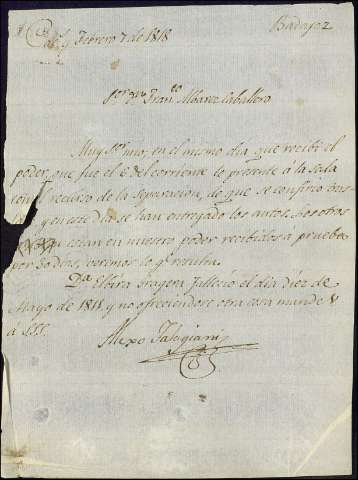 Badajoz
y Febrero 7 de 1818
Sor Dn Franco Albarez Caballero
Muy Sor mio, en el mismo dia que recibi el
poder, que fue el 6 del corriente lo presenté á la sala
con recurso de la separacion, de que se confirió
y en este dia se han entregado los autos, los otros
estan en nuestro poder recibidos á prueba
por 30 dias, veremos lo qe resulta.
Da Elbira Fragera fallecio el dia diez de
Mayo de 1811 y no ofreciendose otra cosa mande V
á
Alexo